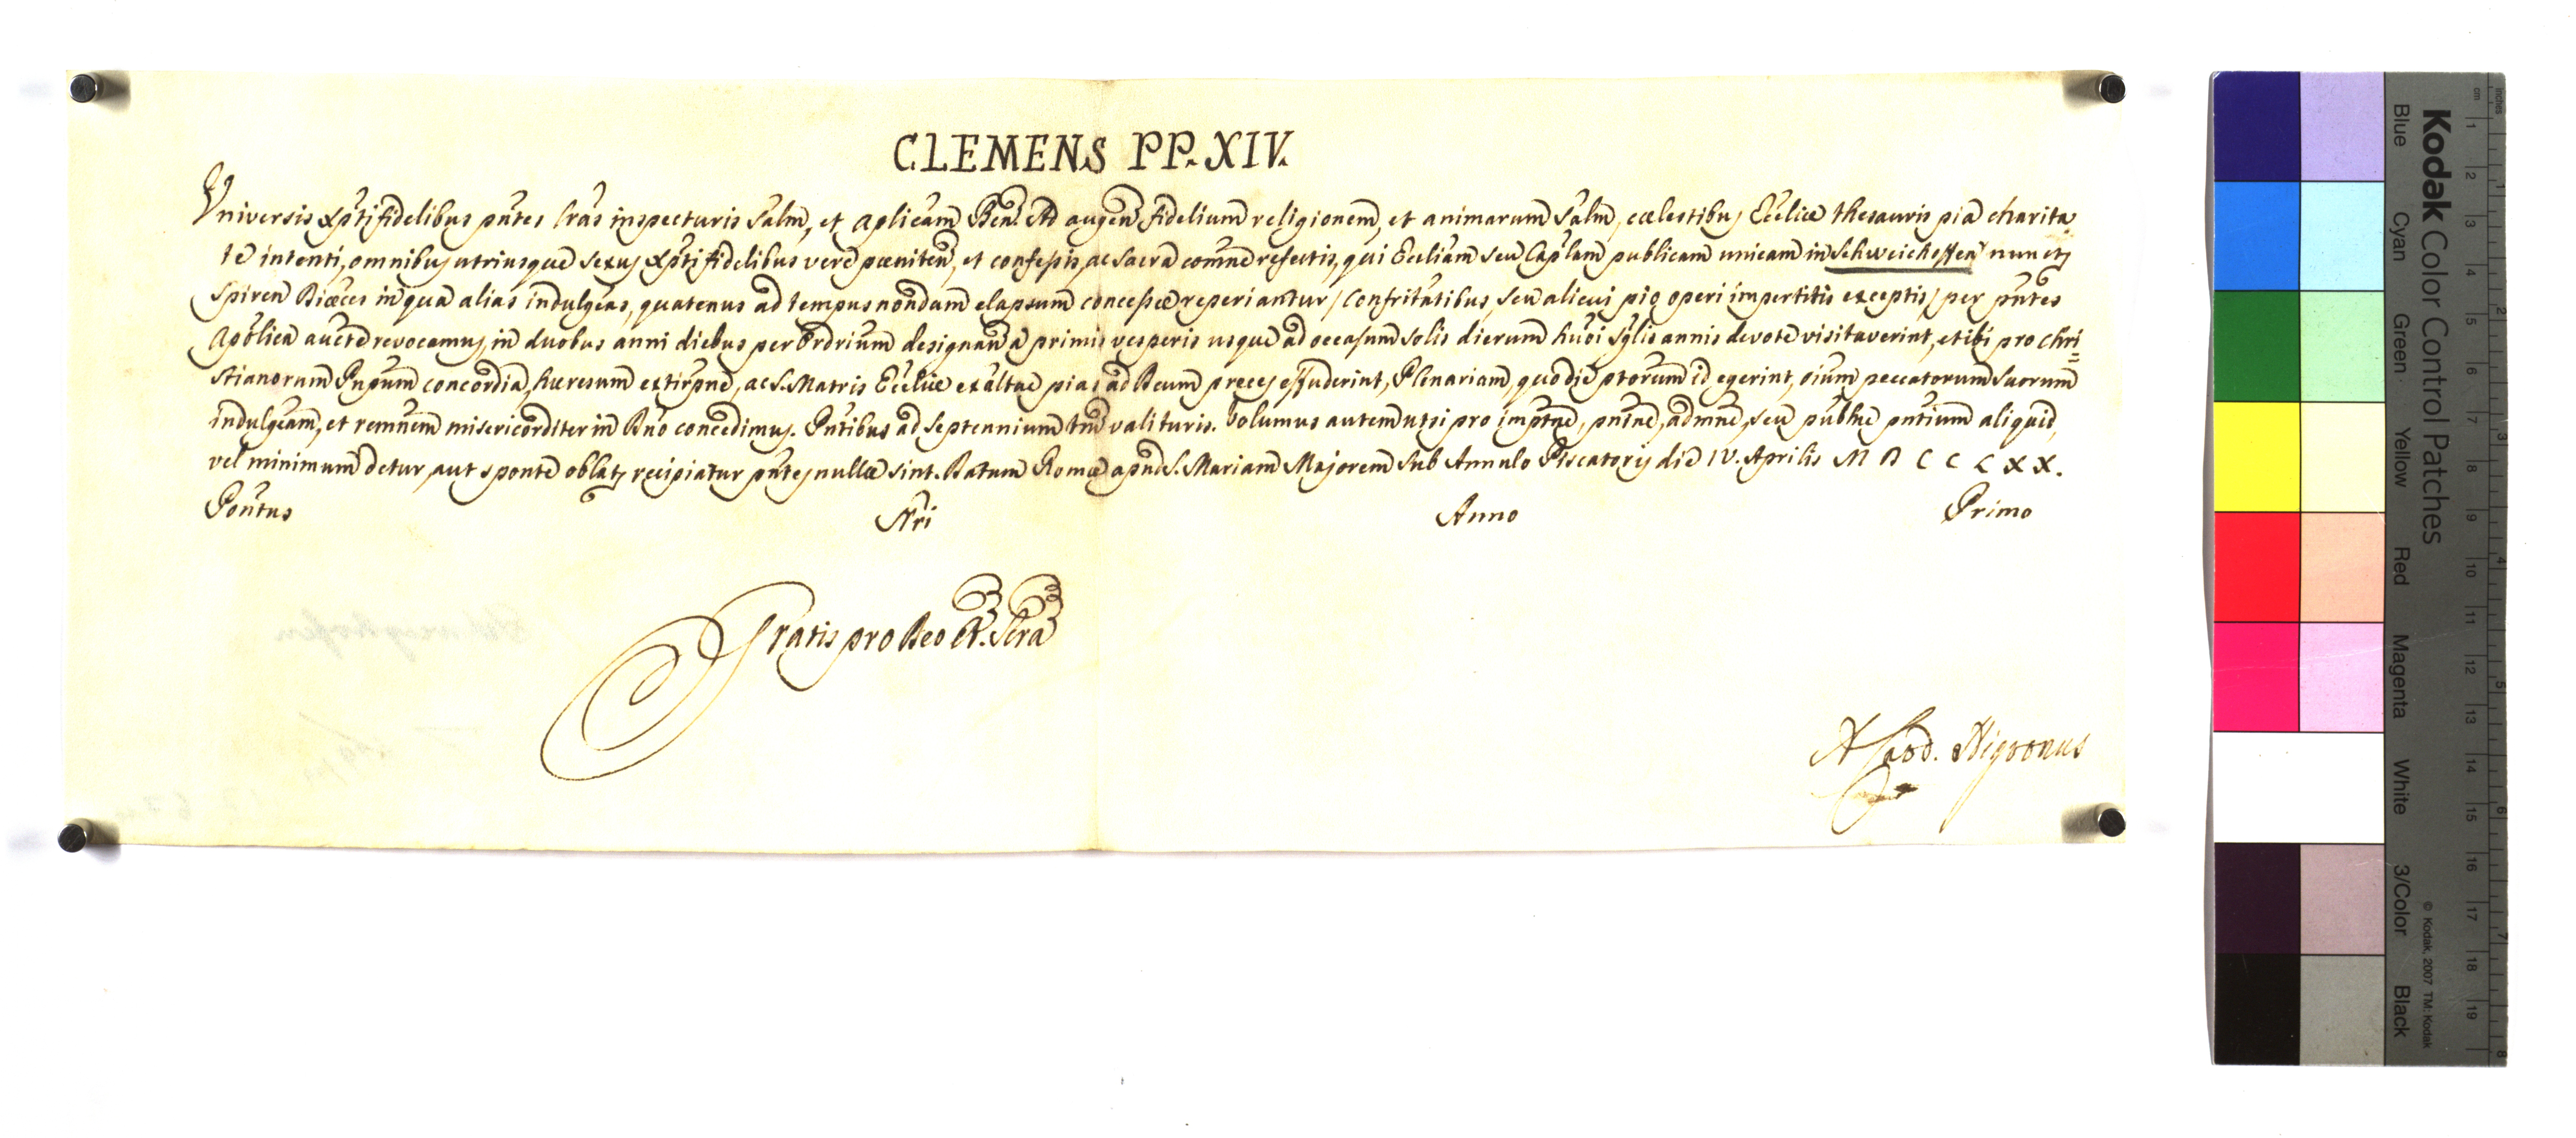 CLEMENS PP. XIV.
Universis Xpti fidelibus pntes lras inspecturis Salm, et Aplicam Ben. Ad augen fidelium religionem, et animarum Salm, coelestibus Eccliae thesauris pia charita
te intenti, omnibus utriusque sexus Xpti fidelibus vere poeniten, et confessis, ac Sacra comne refectis, qui Eccliam seu Caplam publicam unicam in Schweichoffen nunctj
Spiren Dioeces in qua alias indulgeas, quatenus ad tempus nondum elapsum concessae reperiantur / Confritatibus, seu alicui pio operi impertitis exceptis / per pntes
Apolica aucte revocamus, in duobus anni diebus per Ordrium designan a primis vesperis usque ad occasum Solis dierum huoi Sglis annis devote visitaverint, et ibi pro Chri=
stianorum Pnpum concordia, haeresum extirpne, ac S. Matris Eccliae exaltae pias ad Deum preces effuderint, Plenariam, quo die ptorum id egerint, oium peccatorum Suorum
indulgeam, et remnem misericorditer in Dno concedimus. Pntibus ad Septennium tm valituris. Volumus autem ut si pro imptne, pntne, admne, seu publne pntium aliquid,
vel minimum detur, aut sponte oblatj recipiatur pntes nullae sint. Datum Romae apud S. Mariam Majorem Sub Annulo Piscatoris die IV. Aprilis M D C C L X X.
Pontus Nri Anno Primo
Gratis pro Deo et Scra
A Card. Nigronus
Kodak Color Control Patches
Blue Cyan Green Yellow Red Magenta White 3/Color Black
© Kodak, 2007 TM: Kodak
cm 1 2 3 4 5 6 7 8 9 10 11 12 13 14 15 16 17 18 19
inches 1 2 3 4 5 6 7 8